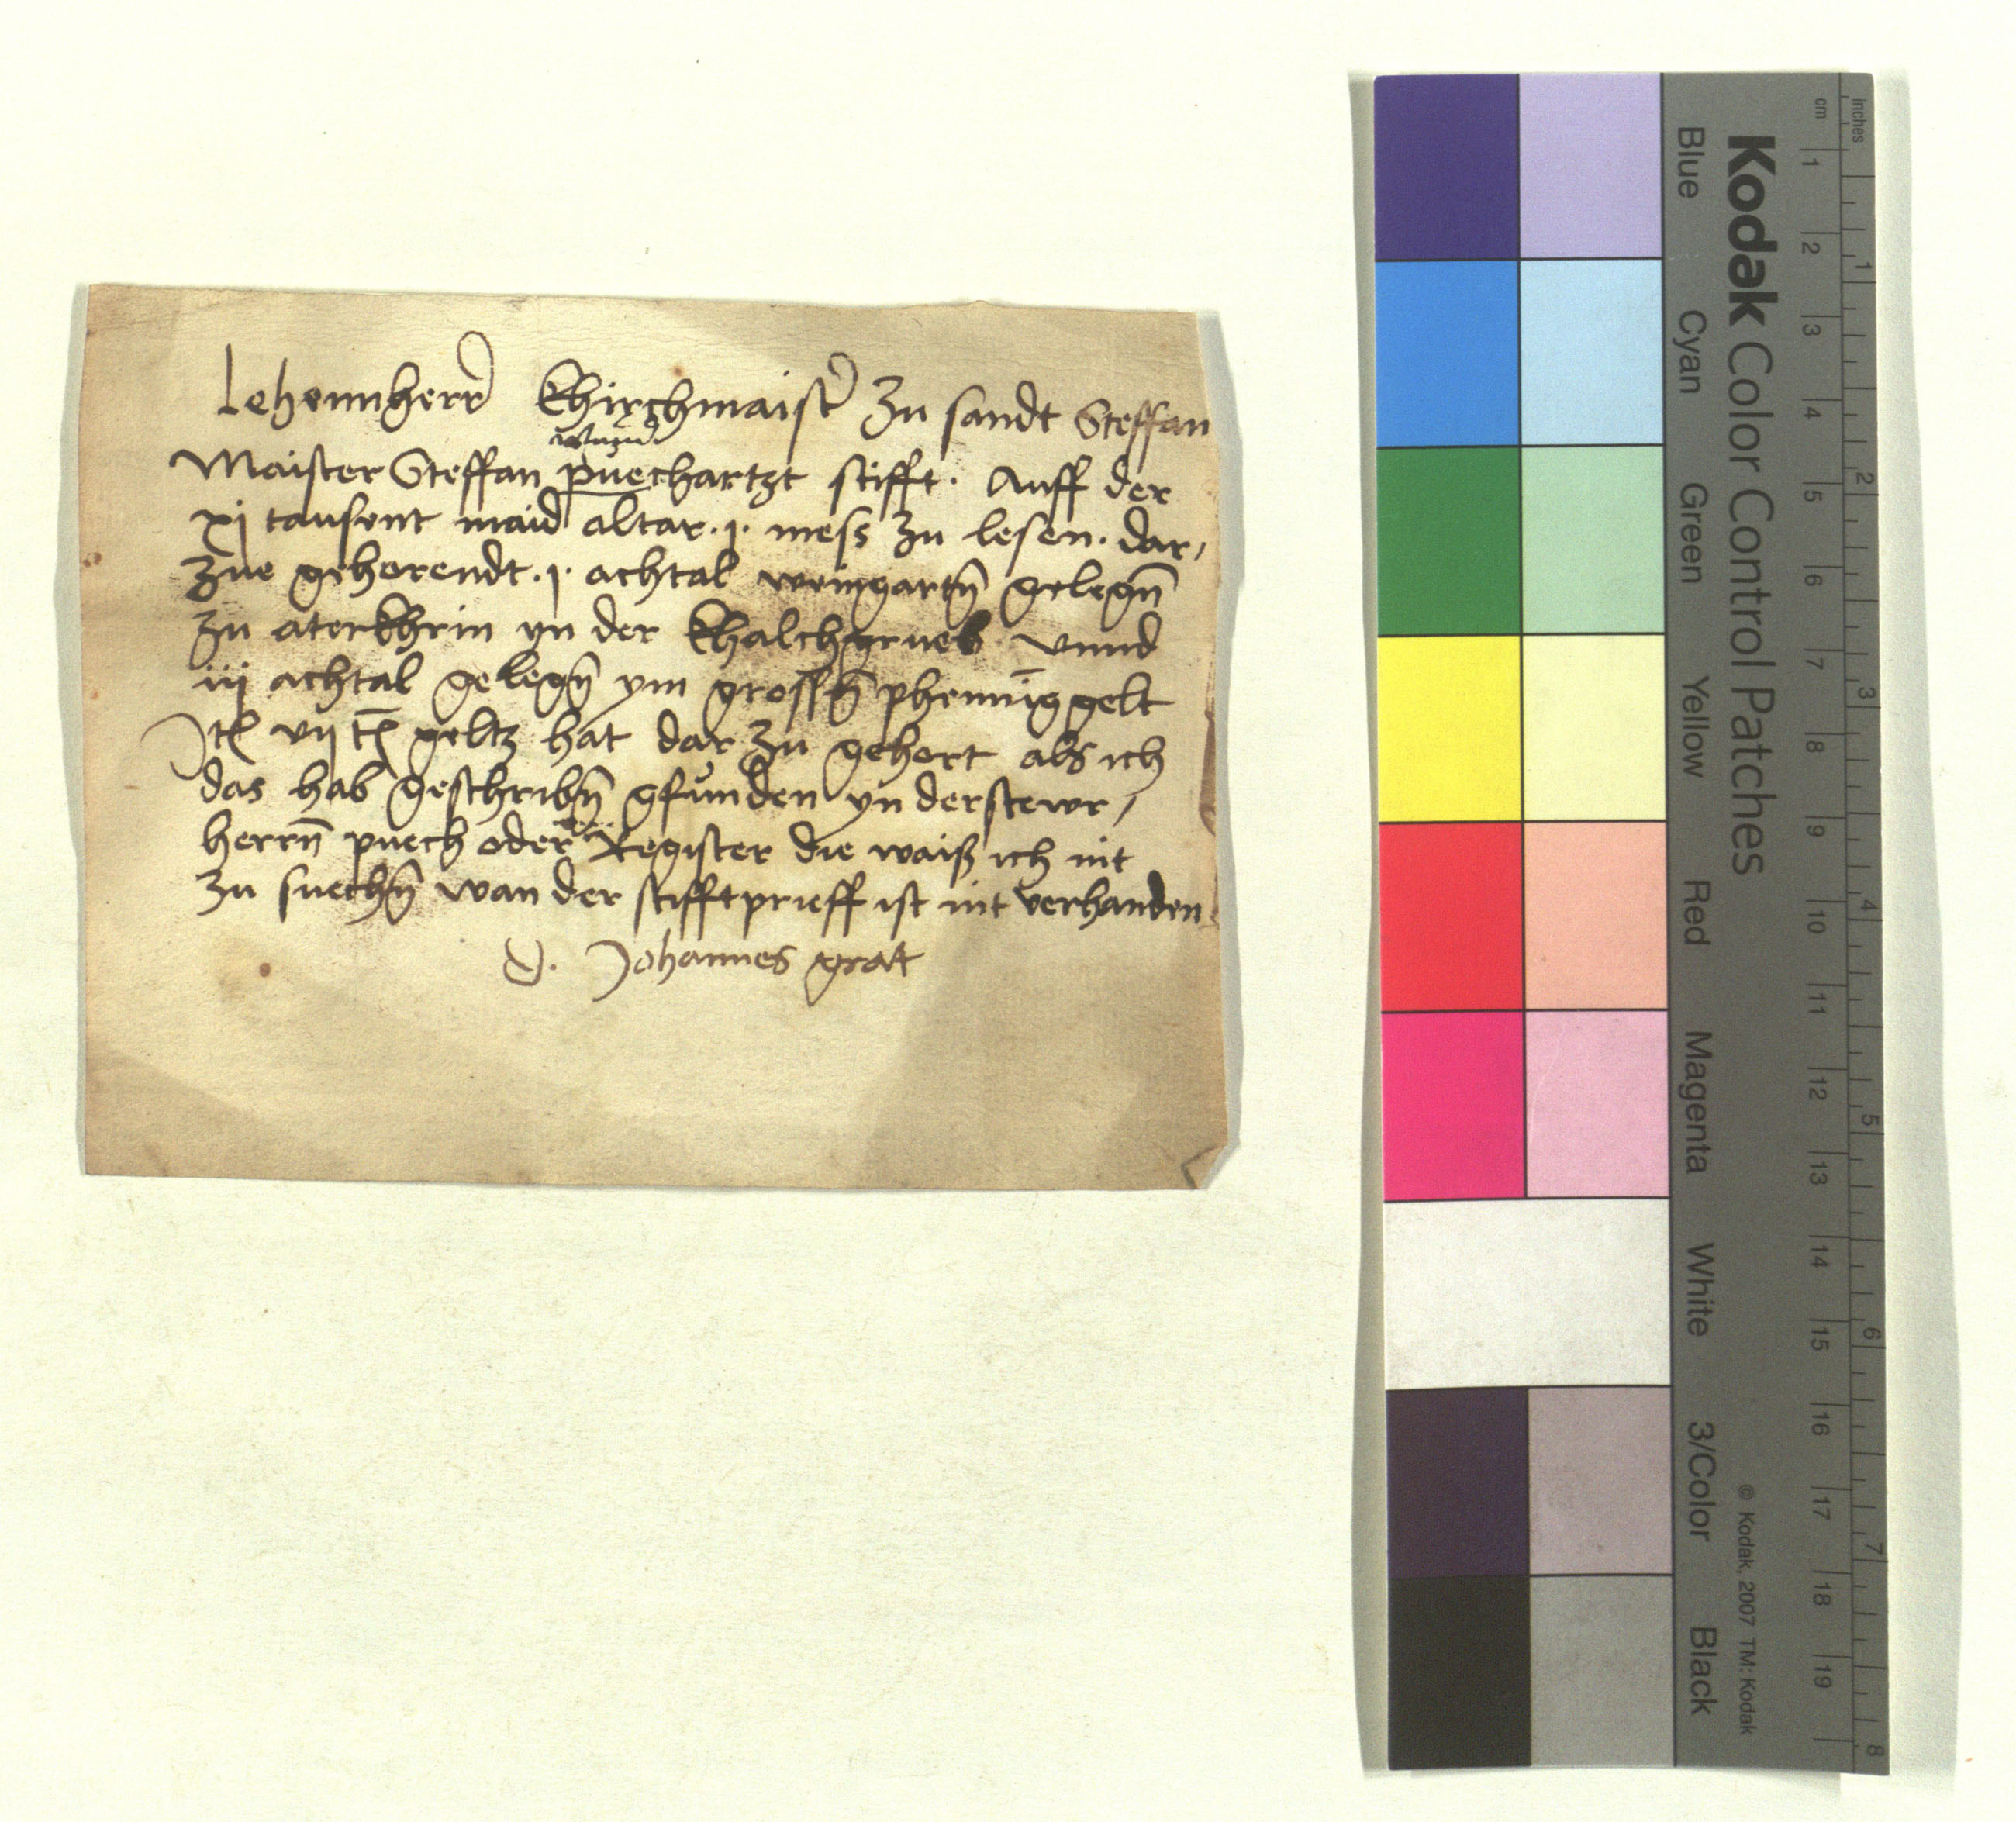 Lehennherr Khirchmaister zu sandt Steffan
wund
Maister Steffan puechartzt stifft. Auff der
xj tausent maid altar .j. mess zu lesen. dar,
zue gehorendt .j. achtal weingartn̄ gelegn̄
zu aterkhrin yn der khalchgrueb vnnd
iij achtal gelegn̄ ym grossn̄ phenn̄iggelt
Itē vij tē geltz hat dar zu gehort als ich
das hab geschribn̄ gfunden yn der stewr,
herrn̄ puech oder Register die waiß ich nit
zu suechn̄ wan der stifftprieff ist nit verhanden
D. Johannes grat
Kodak Color Control Patches
Blue Cyan Green Yellow Red Magenta White 3/Color Black
© Kodak, 2007 TM: Kodak
cm 1 2 3 4 5 6 7 8 9 10 11 12 13 14 15 16 17 18 19
inches 1 2 3 4 5 6 7 8